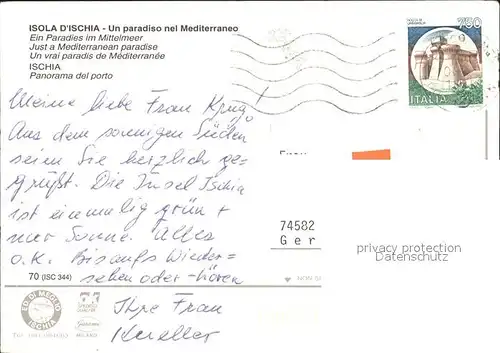 ISOLA D'ISCHIA - Un paradiso nel Mediterraneo
Ein Paradies im Mittelmeer
Just a Mediterranean paradise
Un vrai paradis de Méditerranée
ISCHIA
Panorama del porto
750
ITALIA
Meine liebe Frau Krug!
Aus dem sonnigen Süden
seien Sie herzlich ge-
grüßt. Die Insel Ischia
ist einmalig grün +
nur Sonne. Alles
o.k. Bis aufs Wieder-
sehen oder -hören
Ihre Frau
Frau
74582
Ger
privacy protection
Datenschutz
70 (ISC 344)
ED. DI MEGLIO
ISCHIA
MILANO